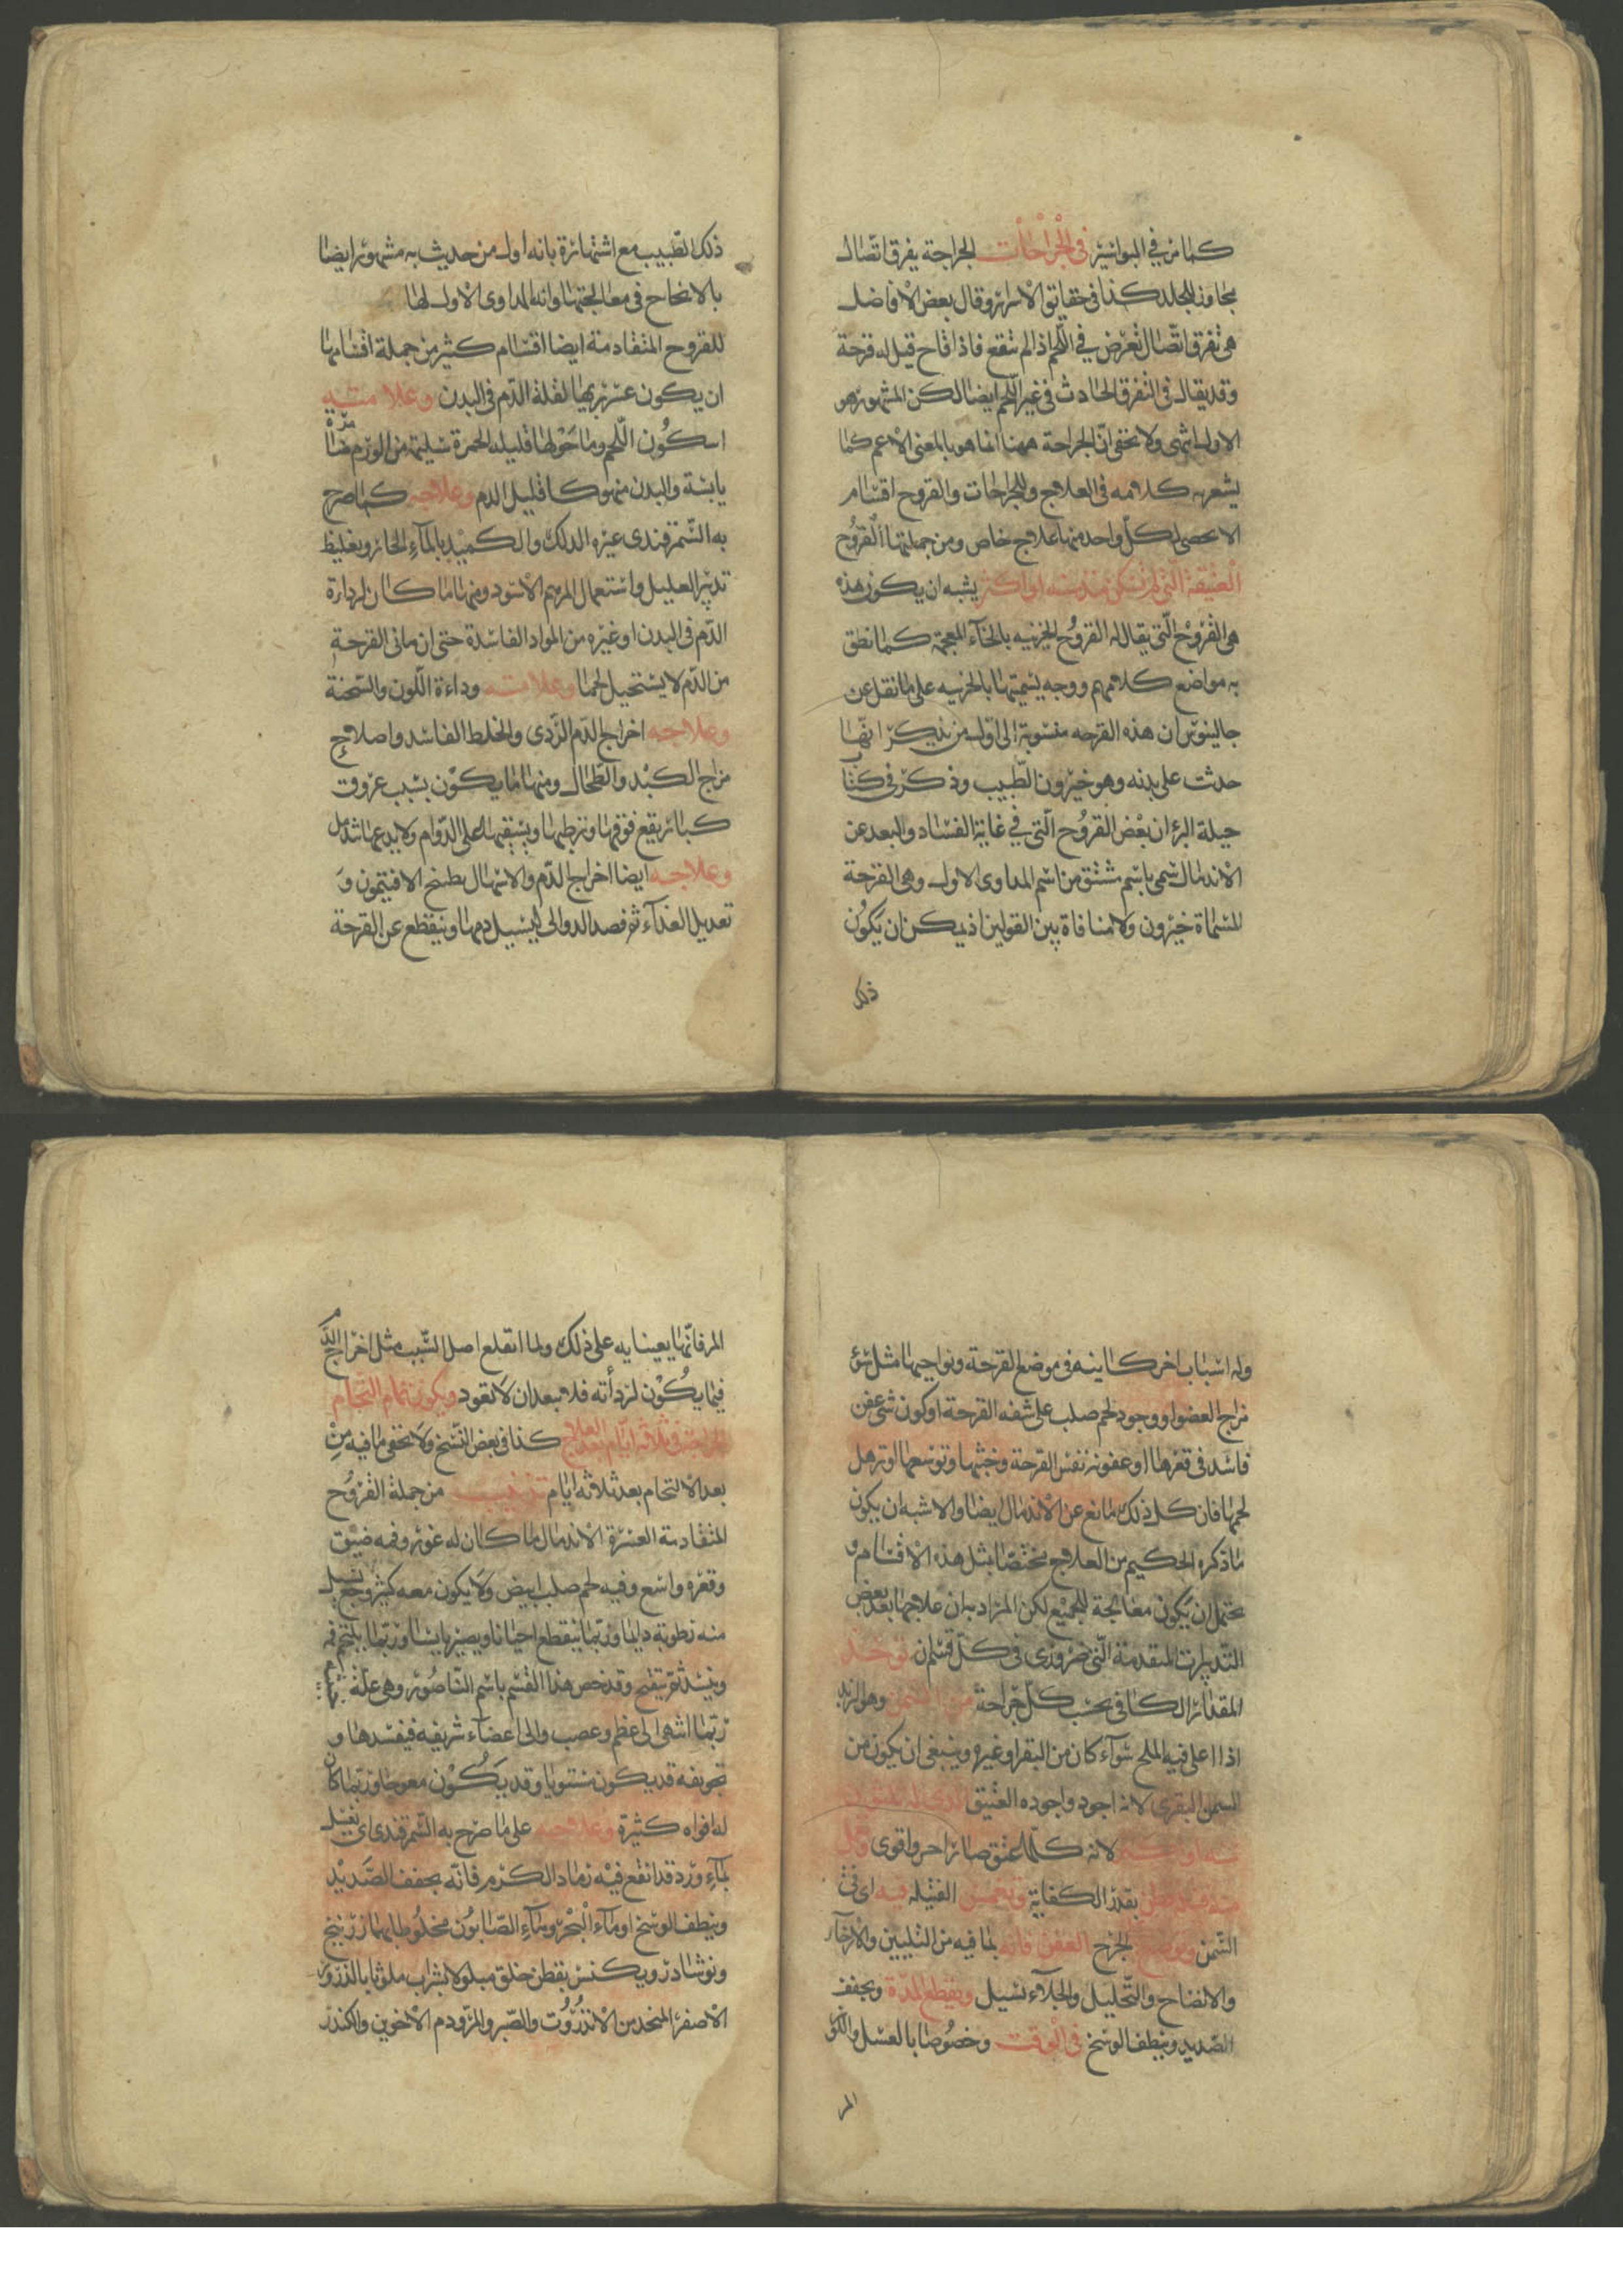 كما مر في البواسير في الجراحات الجراحة تفرق اتصال
مجاوز للجلد كذا في حقايق الاسرار وقال بعض الافاضل
هي تفرق اتصال تعرض في اللحم اذا لم تتقح فاذا قاح قيل له قرحة
وقد يقال في التفرق الحادث في غير اللحم ايضا لكن المشهور هو
الاول انتهى ولا يخفى ان الجراحة ههنا انما هو بالمعنى الاعم كما
يشعر به كلامه في العلاج وللجراحات والقروح اقسام
لا تحصى لكل واحد منها علاج خاص ومن جملتها القروح
العتيقة التي لم تسكن منذ سنة او اكثر يشبه ان يكون هذه
هي القروح التي يقال له القروح الخيرنيه بالخاء المعجمة كما نطق
به مواضع كلامهم ووجه تسميتها بالخيرنيه على ما نقل عن
جالينوس ان هذه القرحه منسوبة الى اول من يذكر انها
حدثت على بدنه وهو خيرون الطبيب وذكر في كتاب
حيلة البرء ان بعض القروح التي في غاية الفساد والبعد عن
الاندمال سمى باسم مشتق من اسم المداوى الاول وهي القرحة
المسماة خيرون ولا منافاة بين القولين اذ يمكن ان يكون
ذلك
ذلك الطبيب مع اشتهاره بانه اول من حديث به مشهور ايضا
بالانجاح في معالجتها وانه المداوى الاول لها
للقروح المتقادمة ايضا اقسام كثير من جملة اقسامها
ان يكون عسر برئها لقلة الدم في البدن وعلامته
ان يكون اللحم وما حولها قليله الحمرة سليمة من الورم ضامرة
يابسة والبدن منهوكا قليل الدم وعلاجه كما صرح
به السمرقندى غيره الدلك والكميد بالماء الحار وتغليظ
تدبير العليل واستعمال المرهم الاسود ومنها ما كان لرداءة
الدم في البدن او غيره من المواد الفاسدة حتى ان ما في القرحة
من الدم لا يستحيل لحما وعلامته رداءة اللون والسحنة
وعلاجه اخراج الدم الردى والخلط الفاسد واصلاح
مزاج الكبد والطحال ومنها ما يكون بسبب عروق
كبار يقع فوقها وترطبها ويسقيها على الدوام ولا يدعها تندمل
وعلاجه ايضا اخراج الدم والاسهال بطبخ الافتيمون و
تعديل الغذاء ثم فصد الدوالى ليسيل دمها وينقطع عن القرحة
وله اسباب اخر كاينة في موضع القرحة ونواحيها مثل سوء
مزاج العضو او وجود لحم صلب على شفه القرحة او كون شئ عفن
فاسد في قعرها او عفونة نفس القرحة وخبثها وتوسعها او ترهل
لحمها فان كل ذلك مانع عن الاندمال ايضا والاشبه ان يكون
ما ذكره الحكيم من العلاج مختصا بمثل هذه الاقسام و
يحتمل ان يكون معالجة للجميع لكن المراد بان علاجها بعد بعض
التدبيرات المتقدمة التي ضرورى في كل قسم ان توخذ
المقدار الكافى بحسب كل جراحة من السمن وهو الزبد
اذا اغلى فيه الملح سواء كان من البقر او غيره وينبغى ان يكون من
السمن البقرى لانه اجود واجوده العتيق
لانه كلما عتق صار احر واقوى
بقدر الكفاية وتغمس الفتيلة فيه اى في
السمن ويوضع الجرح العفن فانه لما فيه من التليين والارخاء
والانضاج والتحليل والجلاء تسيل ويقطع المدة ويجفف
الصديد وينظف الوسخ في الوقت وخصوصا بالعسل واللوز
المر
المر فانهما يعينا به على ذلك ولما انقلع اصل السبب مثل اخراج الدم
فيما يكون لردأته فلا يبعد ان لا تعود ويكون تمام التحام
في ثلاثة ايام بعد العلاج كذا في بعض النسخ ولا يخفى ما فيه من
بعد الالتحام بعد ثلاثة ايام تذنيب من جملة القروح
المتقادمة العسرة الاندمال ما كان له غور وفمه ضيق
وقعره واسع وفيه لحم صلب ابيض ولا يكون معه كثير وجع تسيل
منه رطوبة دايما وربما ينقطع احيانا ويصير يابسا وربما يلتحم فمه
وينسد ثم ينفتح وقد خص هذا القسم باسم الناصور وهي علة
ربما انتهى الى عظم وعصب والى اعضاء شريفه فيفسدها و
تجويفه قد يكون مستويا وقد يكون معوجا وربما كان
له افواه كثيرة وعلاجه على ما صرح به السمرقندى ان يغسل
بماء ورد قد انقع فيه رماد الكرم فانه يجفف الصديد
وينظف الوسخ او بماء البحر وبماء الصابون مخلوطا بهما زرنيخ
ونوشادر ويكنس بقطن خلق مبلولا بشراب ملوثا بالذرور
الاصفر المتخذ من الانزروت والصبر والمر ودم الاخوين والكندر